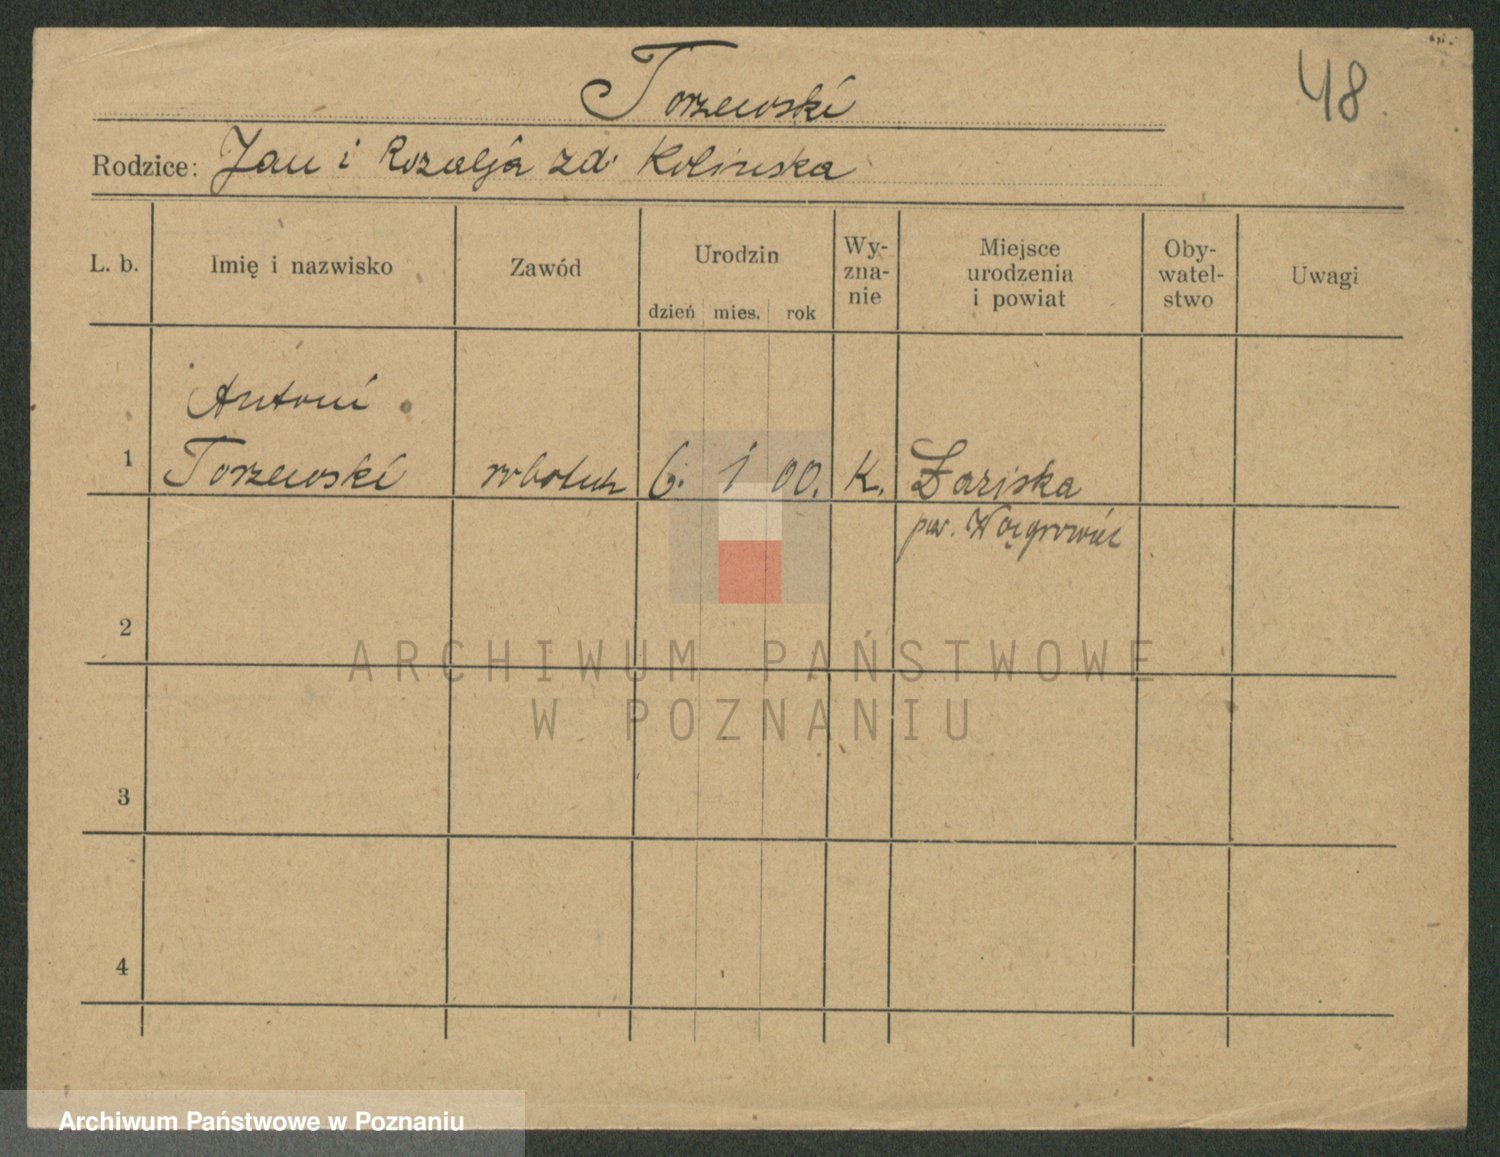 Torzewski
48
Rodzice: Jan i Rozalja zd. Kolinska
L. b. Imię i nazwisko Zawód Urodzin dzień mies. rok Wy- zna- nie Miejsce urodzenia i powiat Oby- watel- stwo Uwagi
Antoni
1 Torzewski robotnik 6. 1 00. K.
pow. Wągrowiec
2
ARCHIWUM PAŃSTWOWE
W POZNANIU
3
4
Archiwum Państwowe w Poznaniu